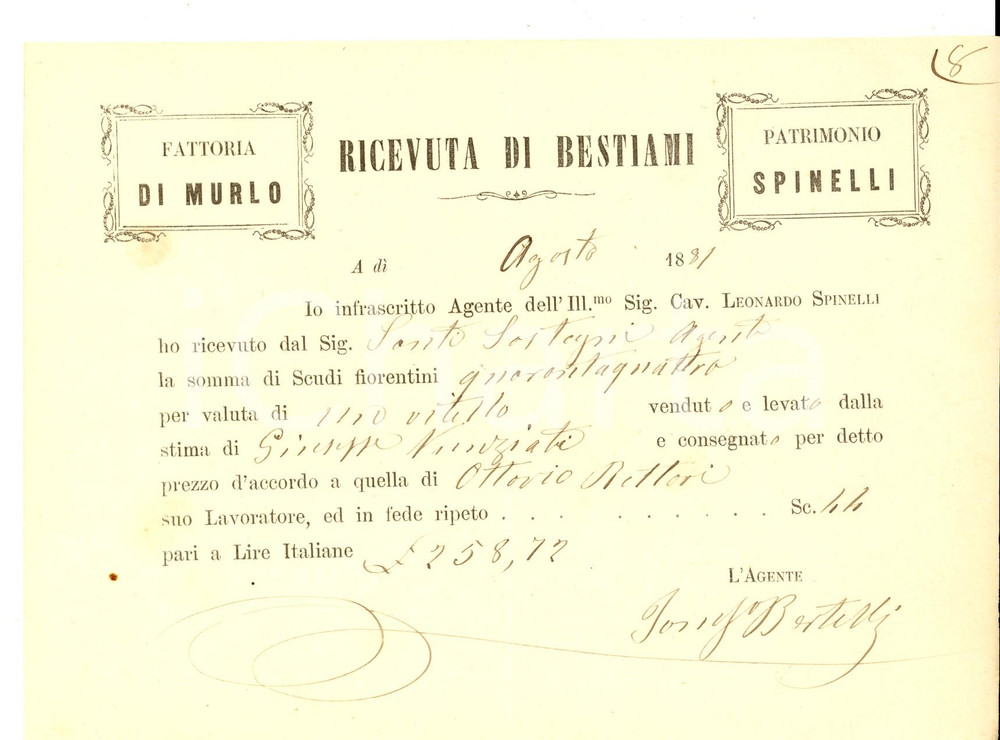 8
FATTORIA
DI MURLO
RICEVUTA DI BESTIAMI
PATRIMONIO
SPINELLI
A dì Agosto 1881
Io infrascritto Agente dell'Ill.mo Sig. Cav. LEONARDO SPINELLI
ho ricevuto dal Sig. Santi Sostegni Agente
la somma di Scudi fiorentini quarantaquattro
per valuta di uno vitello venduto e levato dalla
stima di Giuseppe Nunziati e consegnato per detto
prezzo d'accordo a quella di Ottavio Rettori
suo Lavoratore, ed in fede ripeto . . . . . . . . . . . Sc. 44
pari a Lire Italiane £ 258,72
L'AGENTE
Bertelli